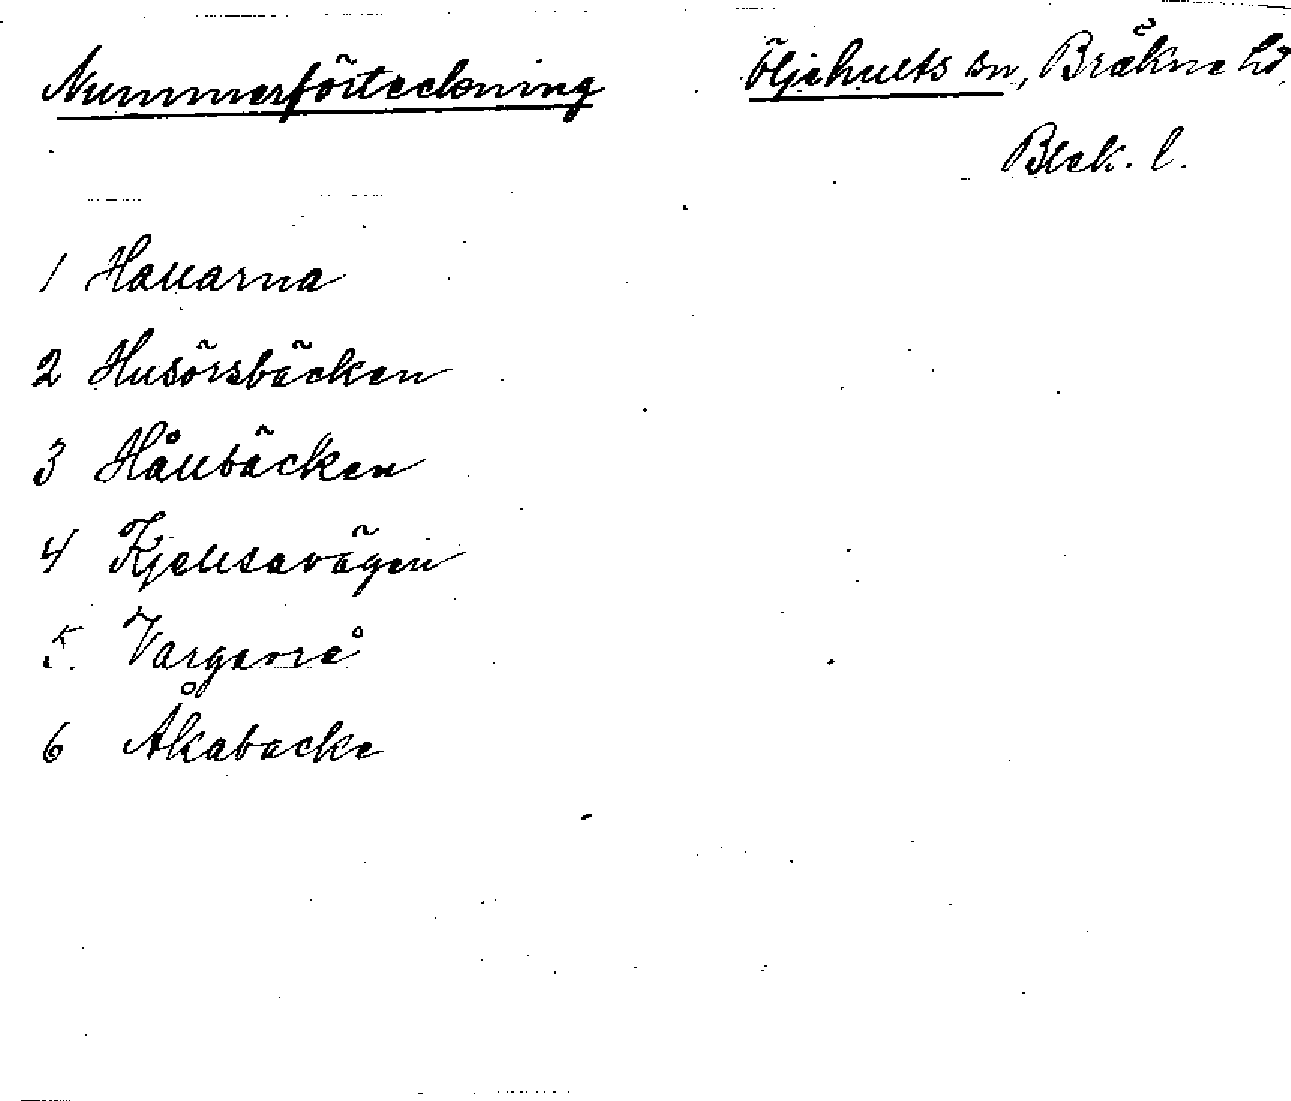 Nummerförteckning
Öljehults sn, Bräkne hd.
Blek. l.
1 Hallarna
2 Husörsbäcken
3 Hållbäcken
4 Kjellsavägen
5. Vargamå
6 Åkabacke